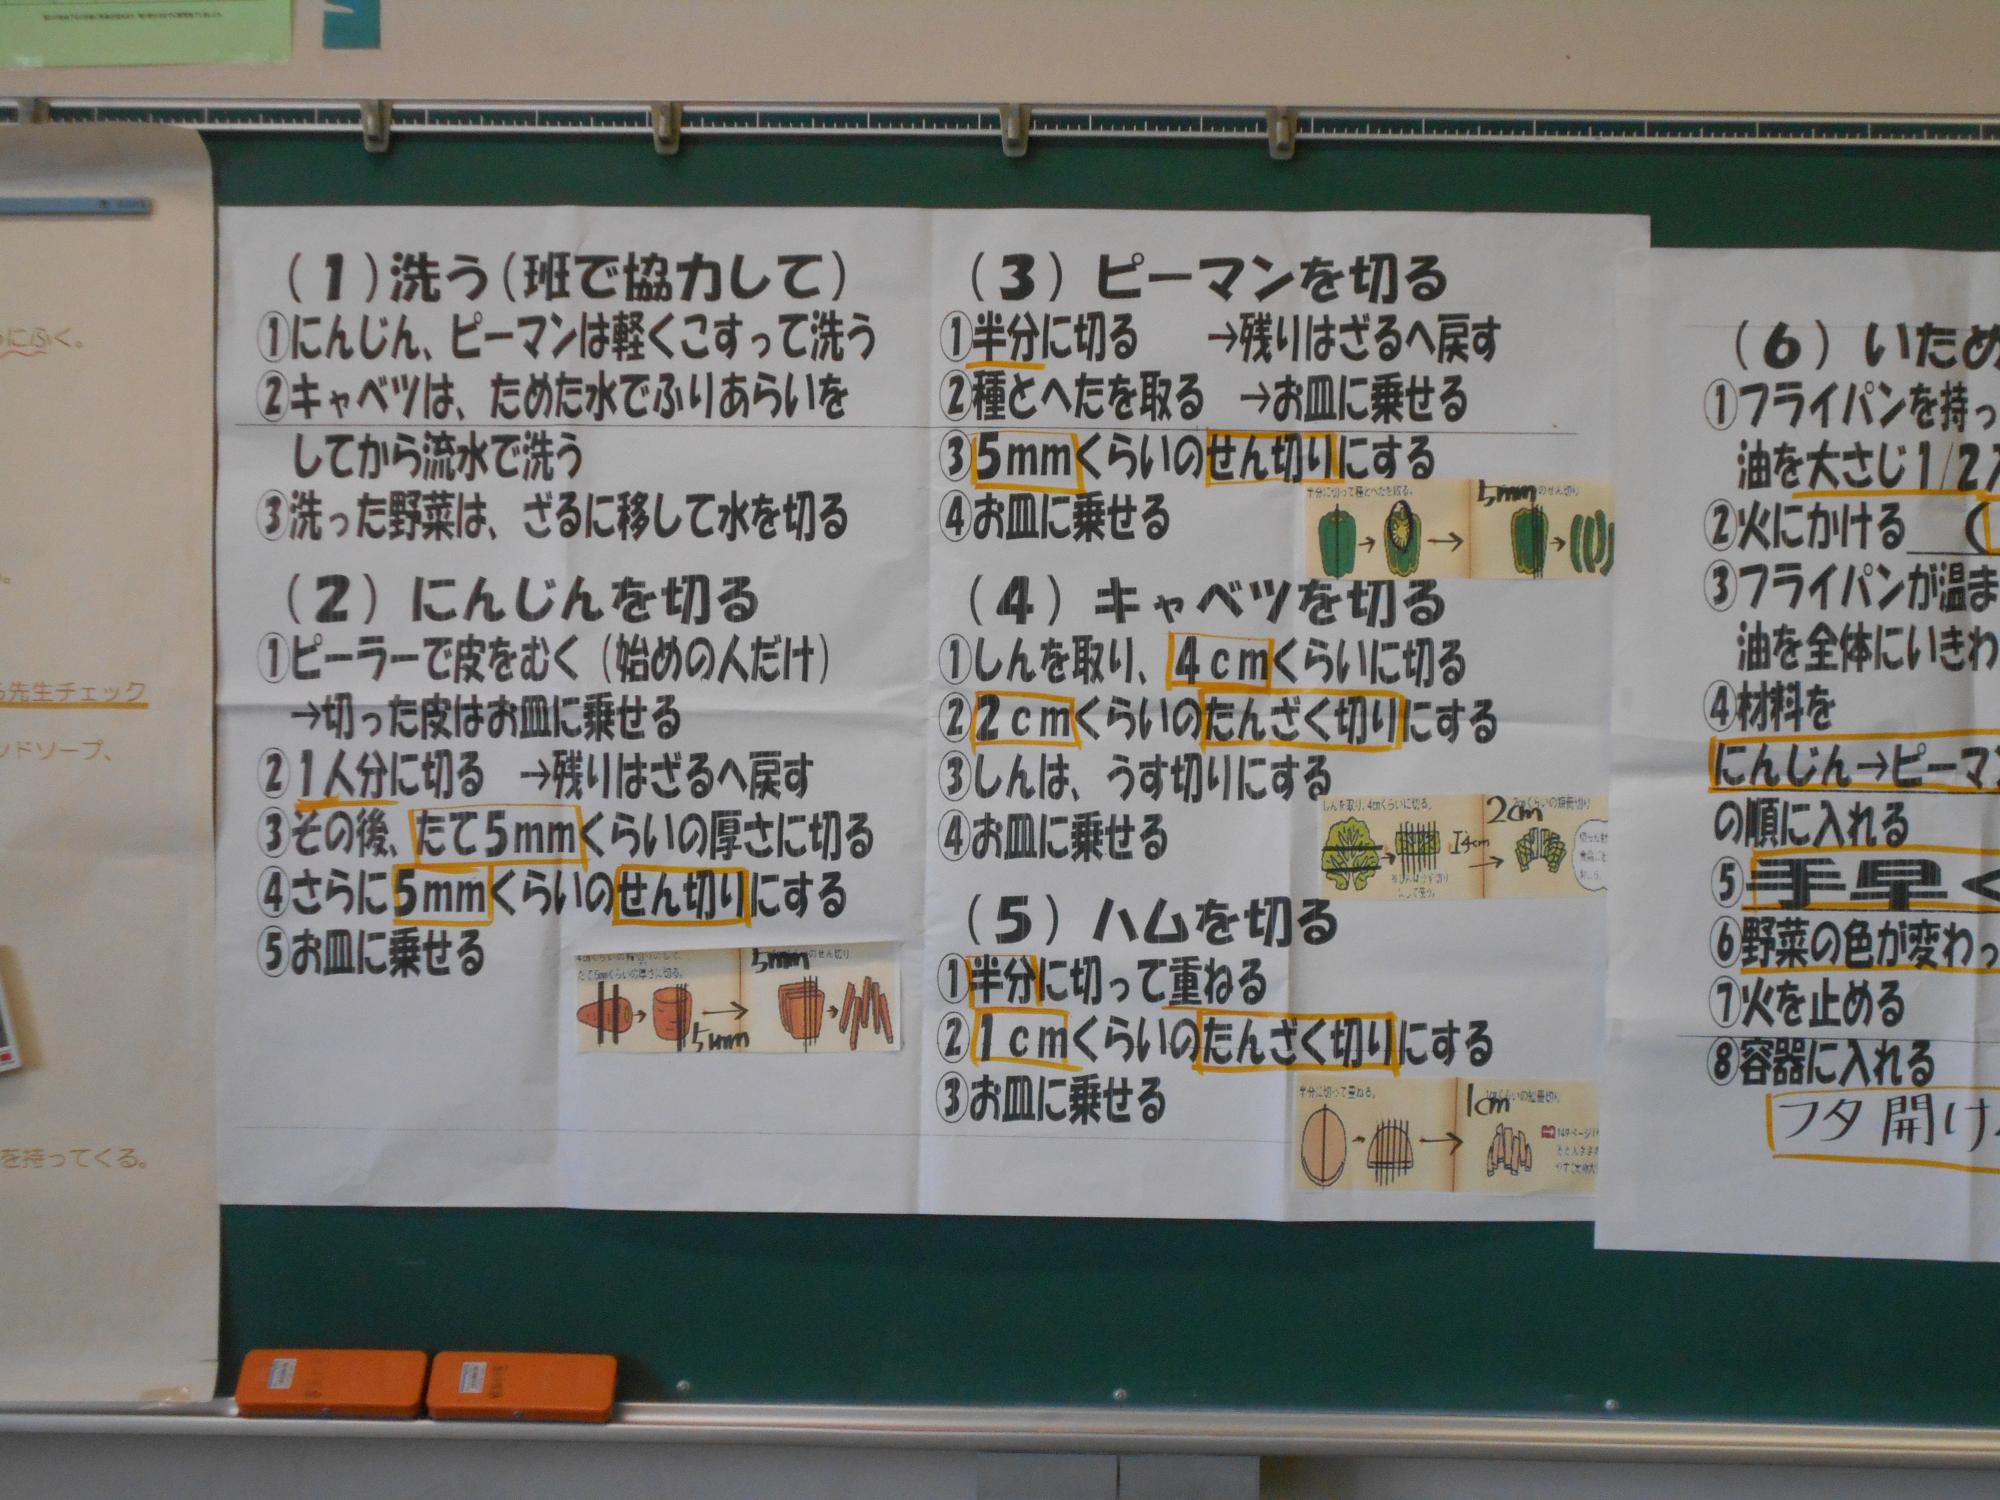 にふく。
先生チェック
ンドソープ、
を持ってくる。
(1)洗う(班で協力して)
①にんじん、ピーマンは軽くこすって洗う
②キャベツは、ためた水でふりあらいを
してから流水で洗う
③洗った野菜は、ざるに移して水を切る
(2)にんじんを切る
①ピーラーで皮をむく(始めの人だけ)
→切った皮はお皿に乗せる
②1人分に切る →残りはざるへ戻す
③その後、たて5mmくらいの厚さに切る
④さらに5mmくらいのせん切りにする
⑤お皿に乗せる
たて5mmくらいの厚さに切る。
5mmのせん切り
5mm
(3)ピーマンを切る
①半分に切る →残りはざるへ戻す
②種とへたを取る →お皿に乗せる
③5mmくらいのせん切りにする
④お皿に乗せる
半分に切って種とへたを取る。
5mmのせん切り
(4)キャベツを切る
①しんを取り、4cmくらいに切る
②2cmくらいのたんざく切りにする
③しんは、うす切りにする
④お皿に乗せる
しんを取り、4cmくらいに切る。
2cmくらいの短冊切り
4cm
(5)ハムを切る
①半分に切って重ねる
②1cmくらいのたんざく切りにする
③お皿に乗せる
半分に切って重ねる。
1cmくらいの短冊切り
(6)いため
①フライパンを持っ
油を大さじ1/2入
②火にかける (
③フライパンが温ま
油を全体にいきわ
④材料を
にんじん→ピーマン
の順に入れる
⑤手早く
⑥野菜の色が変わっ
⑦火を止める
⑧容器に入れる
フタ開け